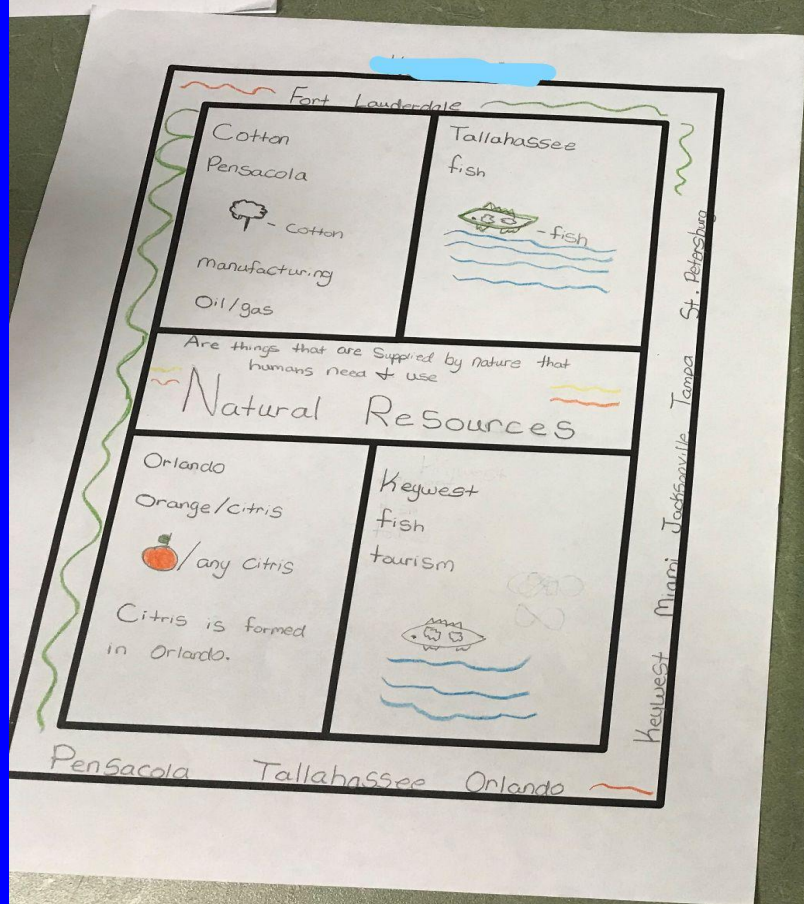 Fort Lauderdale
Cotton
Pensacola
- cotton
manufacturing
Oil/gas
Tallahassee
fish
- fish
Are things that are Supplied by nature that
humans need + use
Natural Resources
Orlando
Orange/citris
/any citris
Citris is formed
in Orlando.
Keywest
fish
tourism
Keywest Miami Jacksonville Tampa St. Petersburg
Pensacola Tallahassee Orlando